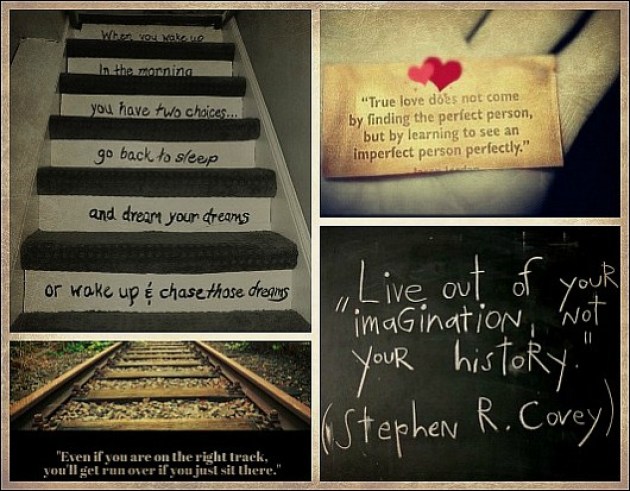 When you wake up
In the morning
you have two choices...
go back to sleep
and dream your dreams
or wake up & chase those dreams
"True love does not come
by finding the perfect person,
but by learning to see an
imperfect person perfectly."
"Live out of your
imaGination, not
your history."
(Stephen R. Covey)
"Even if you are on the right track,
you'll get run over if you just sit there."